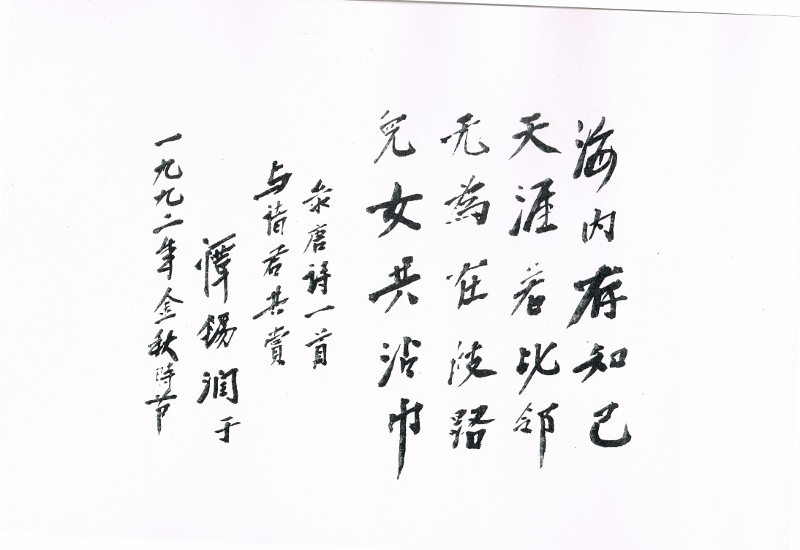 海内存知己
天涯若比邻
无為在歧路
兒女共沾巾
录唐诗一首
与诸君共赏
锡润于
一九九二年金秋时节